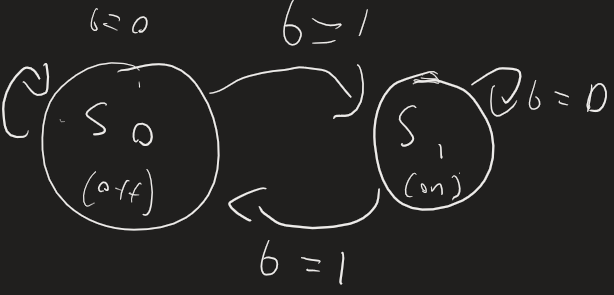 b = 0
b = 1
S0
(off)
S1
(on)
b = 0
b = 1